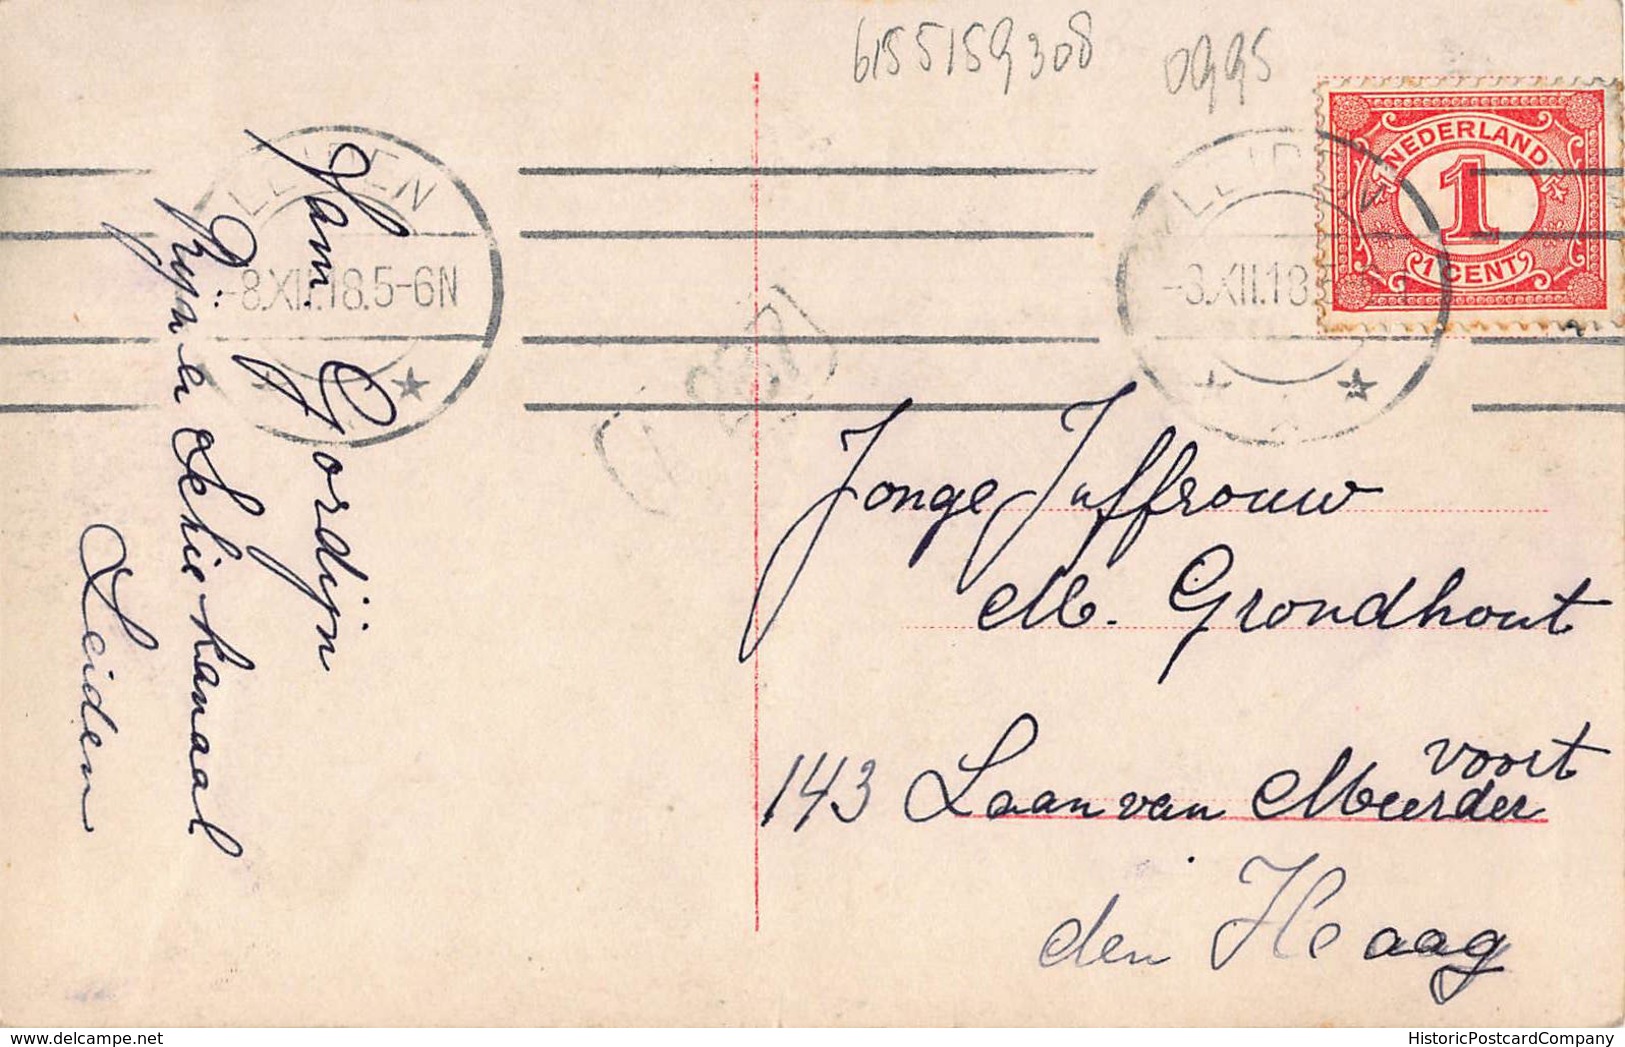 6155159308 0995
NEDERLAND
1
1 CENT
LEIDEN
-8.XII.18.5-6N
LEIDEN
-8.XII.18.5
Ham Gordijn
p: Rijn en Schie-kanaal
Leiden
Jonge Juffrouw
M. Grondhout
voort
143 Laan van Meerder
den Haag
HistoricPostcardCompany